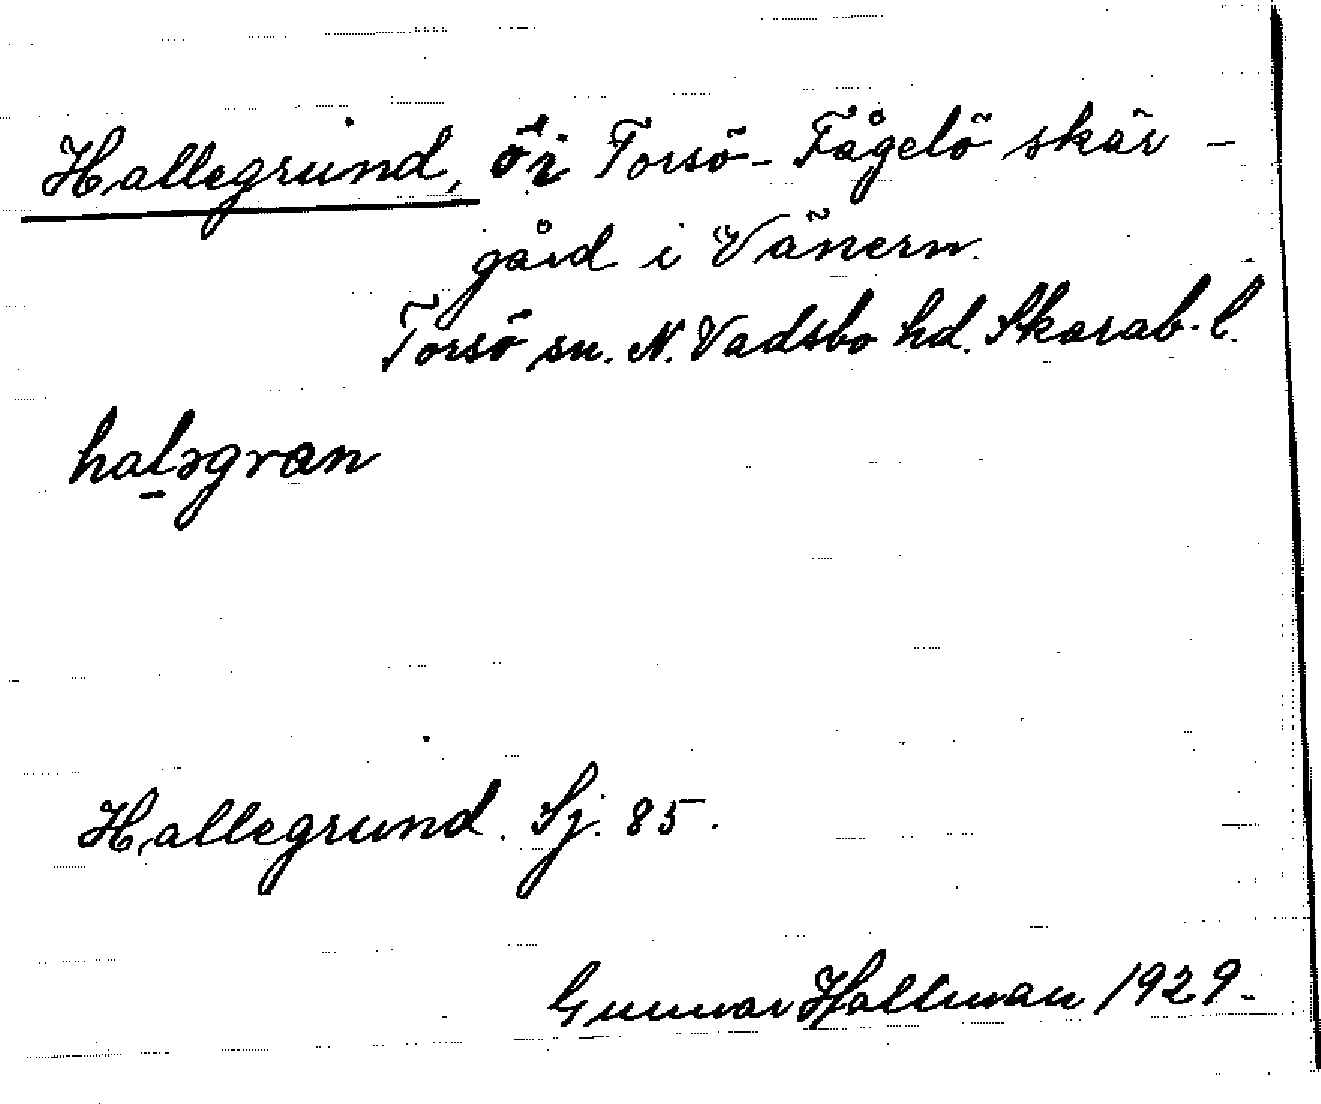 Hallegrund, ö i Torsö-Fågelö skär-
gård i Vänern.
Torsö sn. N. Vadsbo hd. Skarab. l.
halsgran
Hallegrund. Sj. 85.
Gunnar Hallman 1929.